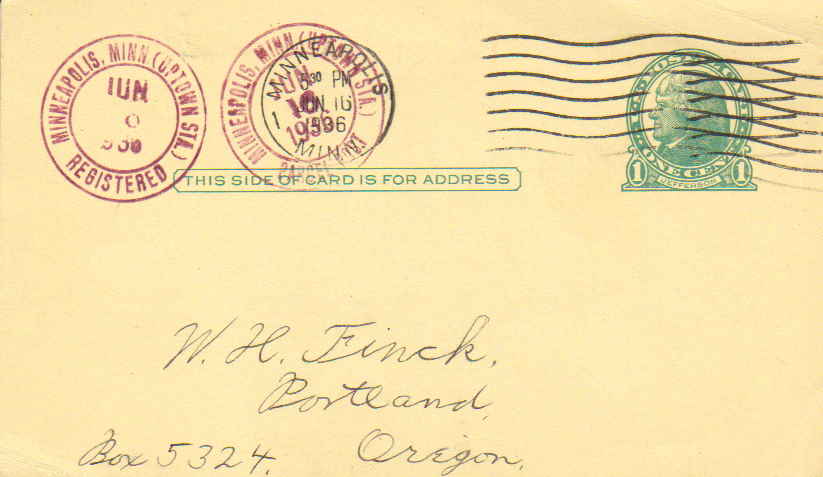 MINNEAPOLIS, MINN (UPTOWN STA.)
JUN
1936
REGISTERED
MINNEAPOLIS, MINN (UPTOWN STA.)
1936
MINNEAPOLIS
530 PM
JUN 16
1936
MINN.
1
THIS SIDE OF CARD IS FOR ADDRESS
U.S. POSTAGE
1 ONE CENT 1
JEFFERSON
W. H. Finck,
Portland,
Box 5324. Oregon.